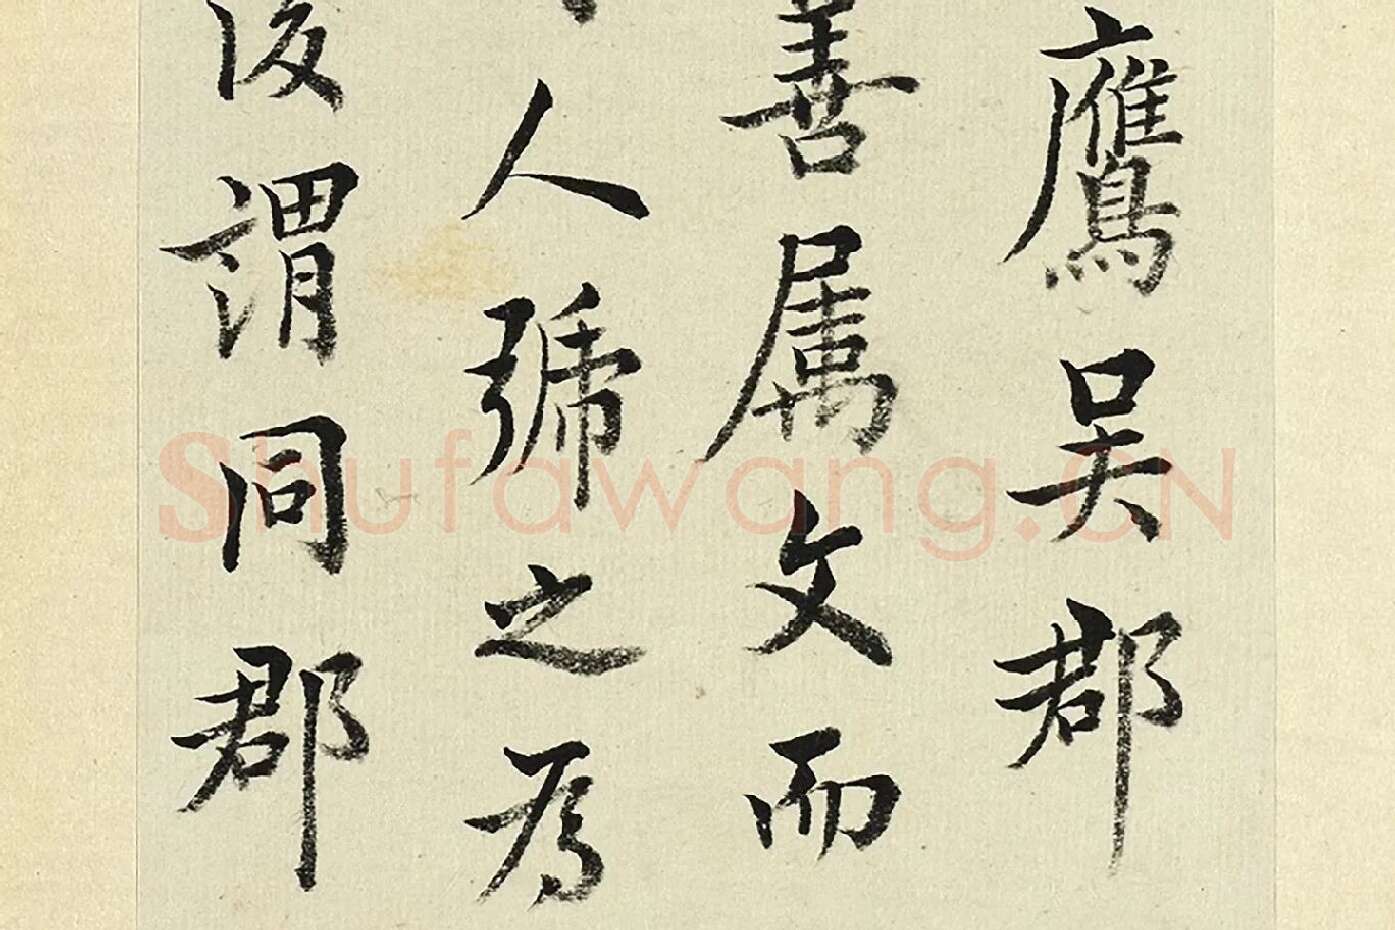 鷹吳郡
善属文而
人號之為
後謂同郡
Shufawang.CN